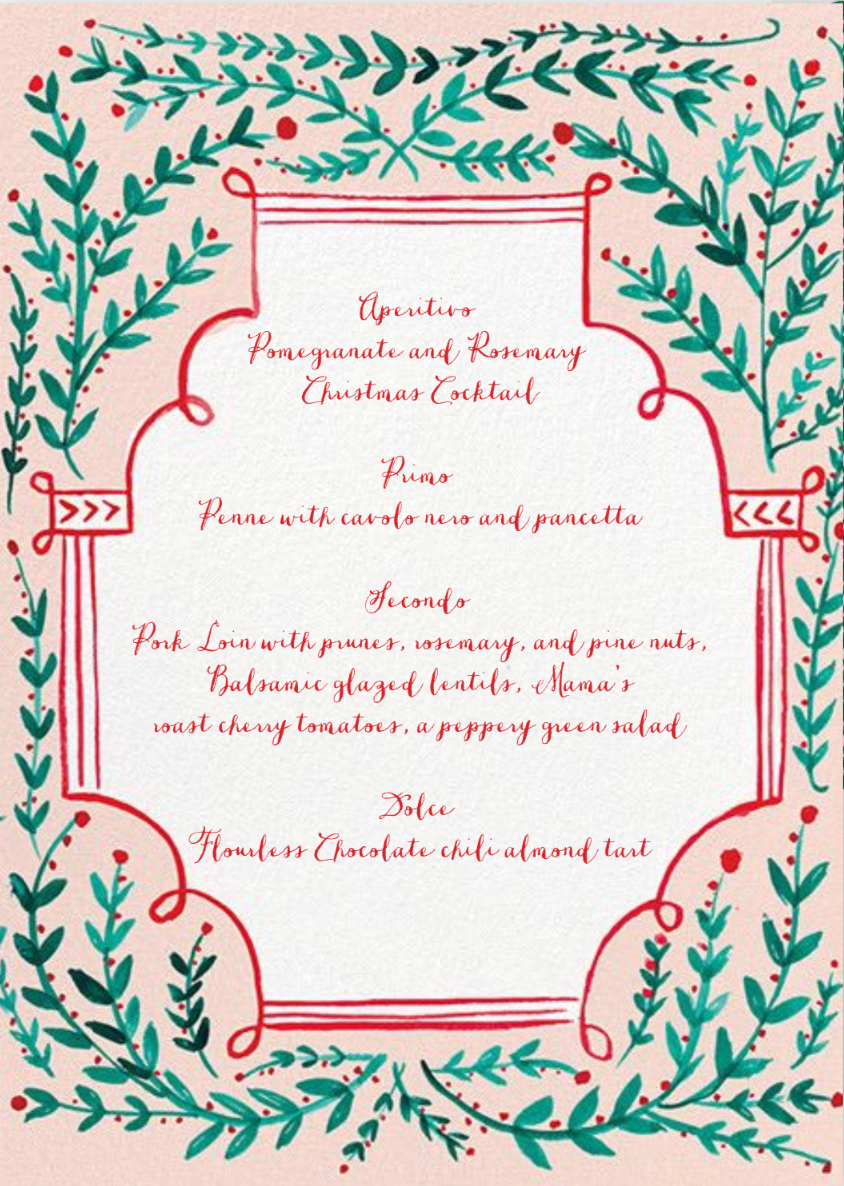 Aperitivo
Pomegranate and Rosemary
Christmas Cocktail
Primo
Penne with cavolo nero and pancetta
Secondo
Pork Loin with prunes, rosemary, and pine nuts,
Balsamic glazed lentils, Mama's
roast cherry tomatoes, a peppery green salad
Dolce
Flourless Chocolate chili almond tart